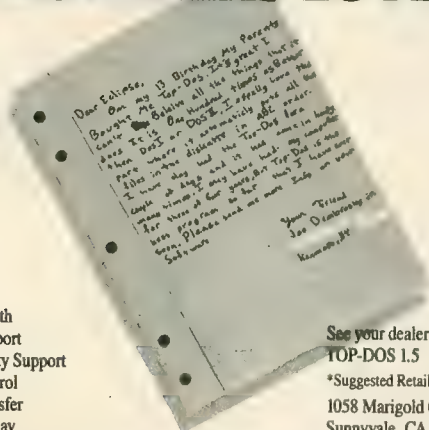 Dear Eclipse,
On my 13 Birthday My Parents
Bought Me Top-Dos. It's great I
can't Belive all the things that it
does It is One Hundred times as Better
then Dos I or Dos II, I espally love the
part where it automaticly puts all the
files in the diskette in ABC order.
I have only had the Top-Dos for a
couple of days and it had came in handy
many times. I only have had my computer
for three or four years, But Top-Dos is the
best program so far that I have ever
seen. Please send me more Info on your
Software
Your Friend
Joe
th
port
ty Support
rol
sfer
ay
See your dealer
TOP-DOS 1.5
*Suggested Retail
1058 Marigold
Sunnyvale, CA